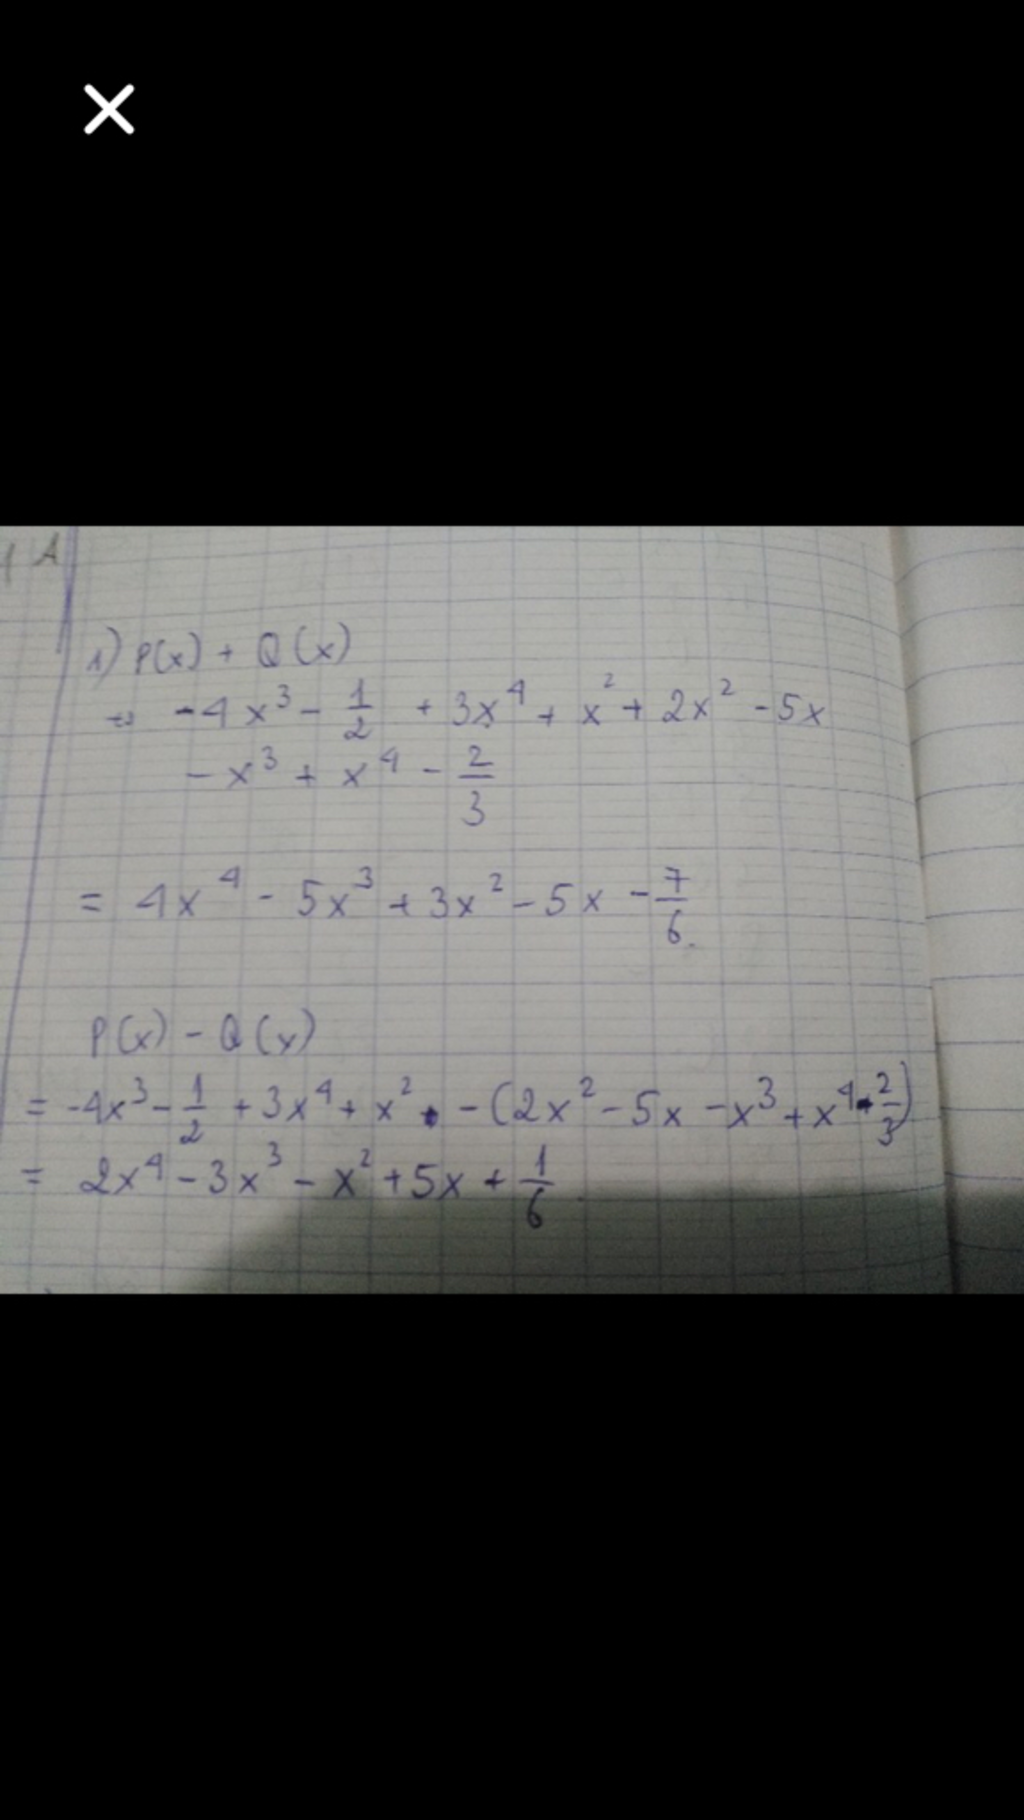 1 A
1) P(x) + Q(x)
⇔ -4x³ - 1/2 + 3x⁴ + x² + 2x² - 5x
- x³ + x⁴ - 2/3
= 4x⁴ - 5x³ + 3x² - 5x - 7/6
P(x) - Q(x)
= -4x³ - 1/2 + 3x⁴ + x² - (2x² - 5x - x³ + x⁴ - 2/3)
= 2x⁴ - 3x³ - x² + 5x + 1/6